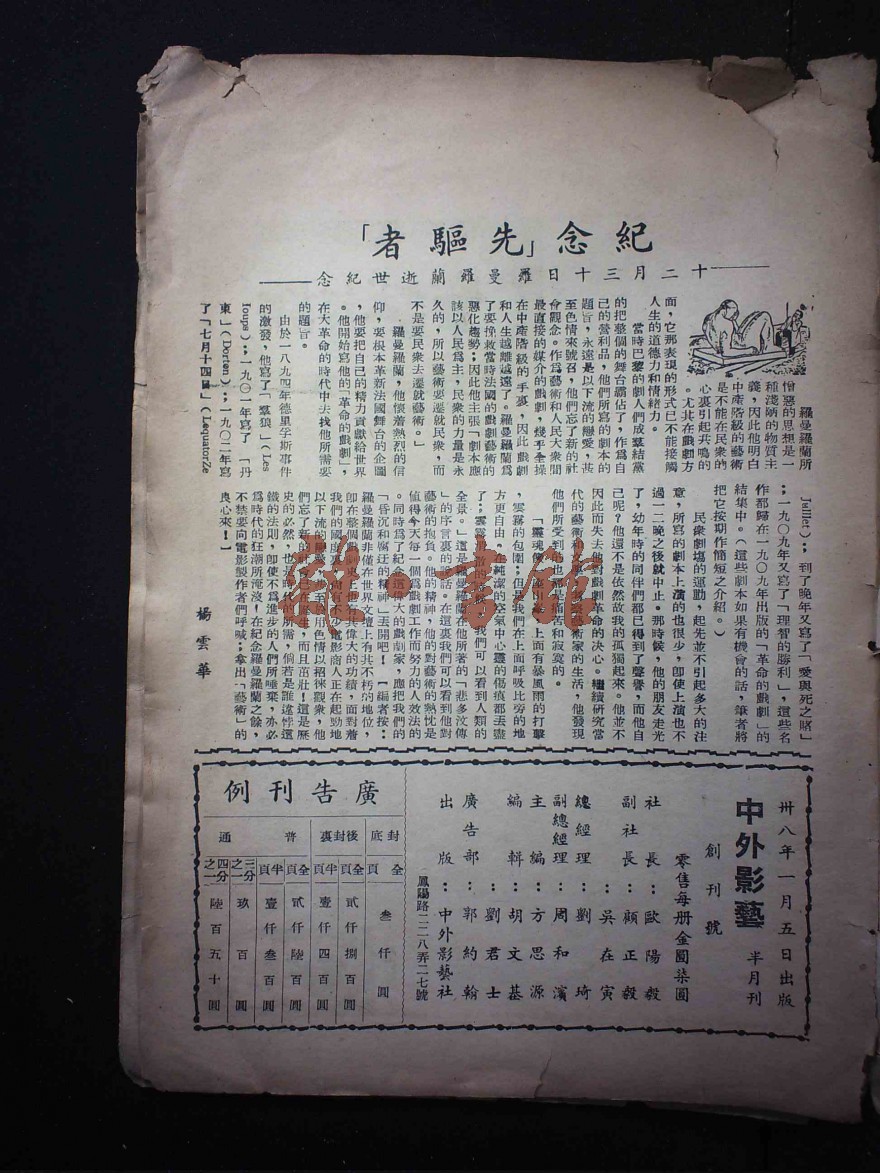 紀念「先驅者」
十二月三十日羅曼羅蘭逝世紀念
羅曼羅蘭所
憎惡的思想是一
種淺陋的物質主
義，因此他明白
中產階級的藝術
是不能在民衆的
心裏引起共鳴的
。尤其在戲劇方
面，它那表現的形式已不能接觸
人生的道德力和情緒力。
當時巴黎的劇人們成羣結黨
的把整個的舞台霸佔了，作爲自
己的營利品，他們所寫的劇本的
題旨，永遠是以下流的戀愛，甚
至色情來號召，他們忘了新的社
會觀念。作爲藝術和人民大衆間
最直接的媒介的戲劇，幾乎全操
在中產階級的手裏，因此戲劇
和人生越離越遠了。羅曼羅蘭爲
了要挽救當時法國的戲劇藝術的
惡化趨勢；因此他主張「劇本應
該以人民爲主，民衆的力量是永
久的，所以藝術要遷就民衆，而
不是要民衆去遷就藝術。」
羅曼羅蘭，他懷着熱烈的信
仰，要根本革新法國舞台的企圖
，他要把自己的精力貢獻給世界
。他開始寫他的「革命的戲劇」，
在大革命的時代中去找他所需要
的題旨。
由於一八九四年德里孚斯事件
的激發，他寫了「羣狼」（Les
loups）；一九〇一年寫了「丹
東」（Dorten）；一九〇二年寫
了「七月十四日」（LequatorZe
Juillet）；到了晚年又寫了「愛與死之賭」
；一九〇九年又寫了「理智的勝利」，這些名
作都歸在一九〇九年出版的「革命的戲劇」的
結集中。（這些劇本如果有機會的話，筆者將
把它按期作簡短之介紹。）
民衆劇場的運動，起先並不引起多大的注
意，所寫的劇本上演的也很少，卽使上演也不
過一二晚之後就中止。那時候，他的朋友走光
了，幼年時的同伴們都已得到了聲譽，而他自
己呢？他還不是依然故我的孤獨起來。他並不
因此而失去他對戲劇革命的决心。繼續研究當
代的藝術和
藝術家的生活，他發現
他們所受到的也都是痛苦和寂寞的。
「靈魂
上面有暴風雨的打擊
，雲霧的包圍；但是我們在上面呼吸比旁的地
方更自由。純潔的空氣中心靈的傷痕都丟盡
了；雲霧
我們可以看到人類的
全景。」這是羅曼羅蘭在他所著的「悲多汶傳
」的序言裏的話。在這裏我們可以看到他對
藝術的抱負。他的精神，他的對藝術的熱忱是
值得今天每一個爲戲劇工作而努力的人效法的
。同時爲了紀念這偉大的戲劇家，應把我們的
「昏沉和腐迂的精神」丟開吧！【編者按：
羅曼羅蘭非僅在世界文壇上有其不朽的地位，
卽在整個戲劇史上也有其偉大的功績，面對着
我們的國度
不少電影商人正在起勁地
以下流的
至於用色情以招徠觀衆，他
們忘了新的社會已在產生，而且茁壯！這是歷
史的必然，也是時代的所需，倘若是誰違悖這
鐵的法則，卽使不爲進步的人們所唾棄，亦必
爲時代的狂潮所淹沒！在紀念羅曼羅蘭之餘，
不禁要向電影製作者們呼喊；拿出「藝術」的
良心來！】
楊雲華
卅八年一月五日出版
中外影藝 半月刊
創刊號
零售每册金圓柒圓
社長：歐陽毅
副社長：顧正毅
吳在寅
總經理：劉琦
副總經理：周和濱
主編：方思源
編輯：胡文基
劉君士
廣告部：郭約翰
出版：中外影藝社
鳳陽路二二八弄二七號
廣告刊例
封底 全頁 叁仟圓
後封裏 全頁 貳仟捌百圓
半頁 壹仟四百圓
普通 全頁 貳仟陸百圓
半頁 壹仟叁百圓
三分之一 玖百圓
四分之一 陸百五十圓